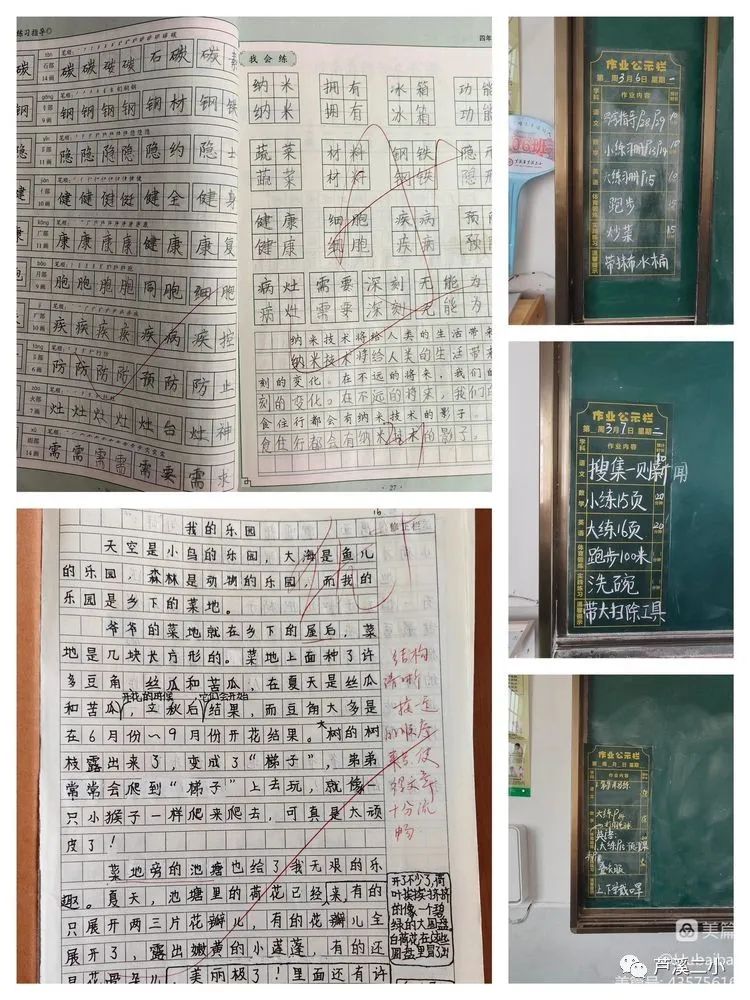 练习指导
碳 石部 14画 碳 碳 碳 碳 石 碳 碳
钢 9画 钢 钢 钢 钢 钢 材 钢 铁
隐 11画 隐 隐 隐 隐 隐 约 隐 士
健 10画 健 健 健 健 健 全 健 身
康 11画 康 康 康 康 健 康 康 复
胞 月部 9画 胞 胞 胞 胞 同 胞 细 胞
疾 10画 疾 疾 疾 疾 疾 病 疾 控
防 6画 防 防 防 防 预 防 防 止
灶 火部 7画 灶 灶 灶 灶 灶 台 灶 神
需 雨部 14画 需 需 需 需 需 要 需 求
四年
我会练
纳米 拥有 冰箱 功能
纳米 拥有 冰箱 功能
蔬菜 材料 钢铁 隐形
蔬菜 材料 钢铁 隐形
健康 细胞 疾病 预防
健康 细胞 疾病 预防
病灶 需要 深刻 无能为
病灶 需要 深刻 无能为
纳米技术将给人类的生活带来
纳米技术将给人类的生活带来
刻的变化。在不远的将来，我们的
刻的变化。在不远的将来，我们的
食住行都会有纳米技术的影子。
食住行都会有纳米技术的影子。
27
作业公示栏
第 周 3月6日 星期一
学科 作业内容
语文 写字指导P28 P29 10
数学 小练习册P13 P14
英语 大练习册P15 10
体育锻炼 跑步 15
实践练习 炒菜 15
温馨提示 带抹布水桶
作业公示栏
第 周 3月7日 星期二
学科 作业内容
语文 搜集一则新闻 10
数学 小练15页 20
英语 大练16页 20
体育锻炼 跑步100米
实践练习 洗碗
温馨提示 带大扫除工具
作业公示栏
第 周 月 日 星期
作业内容
上下学戴口罩
16
修正栏
我的乐园
天空是小鸟的乐园，大海是鱼儿
的乐园，森林是动物的乐园，而我的
乐园是乡下的菜地。
爷爷的菜地就在乡下的屋后，菜
地是几块长方形的。菜地上面种了许
多豆角、丝瓜和苦瓜，在夏天是丝瓜
开花的时候 它们会开始
和苦瓜，立秋后结果，而豆角大多是
在6月份～9月份开花结果。大树的树
枝露出来了，变成了“梯子”，弟弟
常常会爬到“梯子”上去玩，就像一
只小猴子一样爬来爬去，可真是太顽
皮了！
菜地旁的池塘也给了我无艰的乐
趣。夏天，池塘里的荷花已经来，有的
只展开两三片花瓣儿，有的花瓣儿全
展开了，露出嫩黄的小莲蓬，有的还
是花骨朵儿，美丽极了！里面还有许
结构
清晰
按一定
的顺序
来写，使
得文章
十分流
畅
开了不少了，荷
叶挨挨挤挤
的，像一个碧
绿的大圆盘，
白荷花在这些
圆盘里冒了出
美篇
芦溪二小